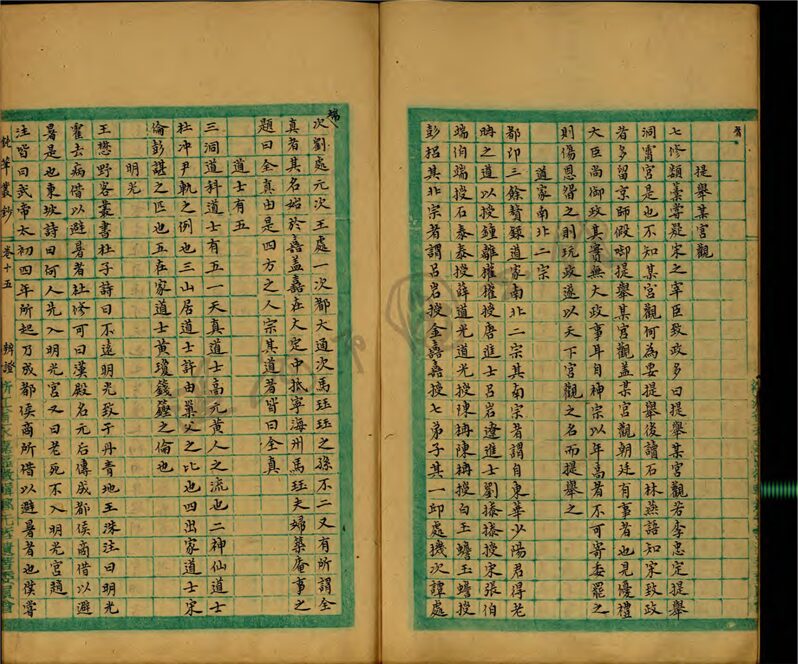 提舉某宮觀
七修類藁嘗疑宋之宰臣致政多曰提舉某宮觀若李忠定提舉
洞霄宮是也不知某宮觀何為要提舉後讀石林燕語知宋致政
者多留京師假啣提舉某宮觀盖某宮觀朝廷有事者也見優禮
大臣尚御政真實無大政事耳自神宗以年高者不可寄委罷之
則傷恩留之則玩政遂以天下宮觀之名而提舉之
道家南北二宗
都卬三餘贅錄道家南北二宗其南宗者謂自東華少陽君得老
聃之道以授鍾離權權授唐進士呂嵓遼進士劉操操授宋張伯
端伯端授石泰泰授薛道光道光授陳楠陳楠授白玉蟾玉蟾授
彭耜其北宗者謂呂嵓授金嘉嘉授七弟子其一邱處機次譚處
端
次劉處元次王處一次郝大通次馬珏珏之孫不二又有所謂全
真者其名始於嘉盖嘉在大定中抵寧海州馬珏夫婦築庵事之
題曰全真由是四方之人宗其道者皆曰全真
道士有五
三洞道科道士有五一天真道士高元黃人之流也二神仙道士
杜冲尹軌之例也三山居道士許由巢父之比也四出家道士宋
倫彭諶之匹也五在家道士黃瓊籛鏗之倫也
明光
王懋野客叢書杜子詩曰不遠明光致于丹青地王洙注曰明光
霍去病借以避暑者杜修可曰漢殿名元后傳成都侯商借以避
暑是也東坡詩曰何人先入明光宮又曰老死不入明光宮趙
注皆曰武帝太初四年所起乃成都侯商所借以避暑者也僕嘗
鈔 卷十五 辨證